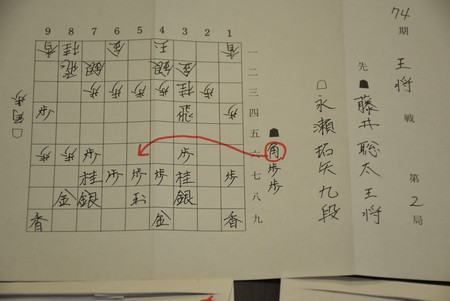 74期 王将戦 第2局
先 ☗ 藤井聡太 王将
☖ 永瀬拓矢 九段
☗ 角歩歩
9 8 7 6 5 4 3 2 1
香 桂 金 王 香 一
飛 銀 銀 金 二
歩 歩 歩 歩 桂 歩 三
歩 飛 歩 四
五
歩 歩 歩 歩 六
桂 歩 歩 歩 桂 歩 七
金 銀 玉 銀 八
香 金 香 九